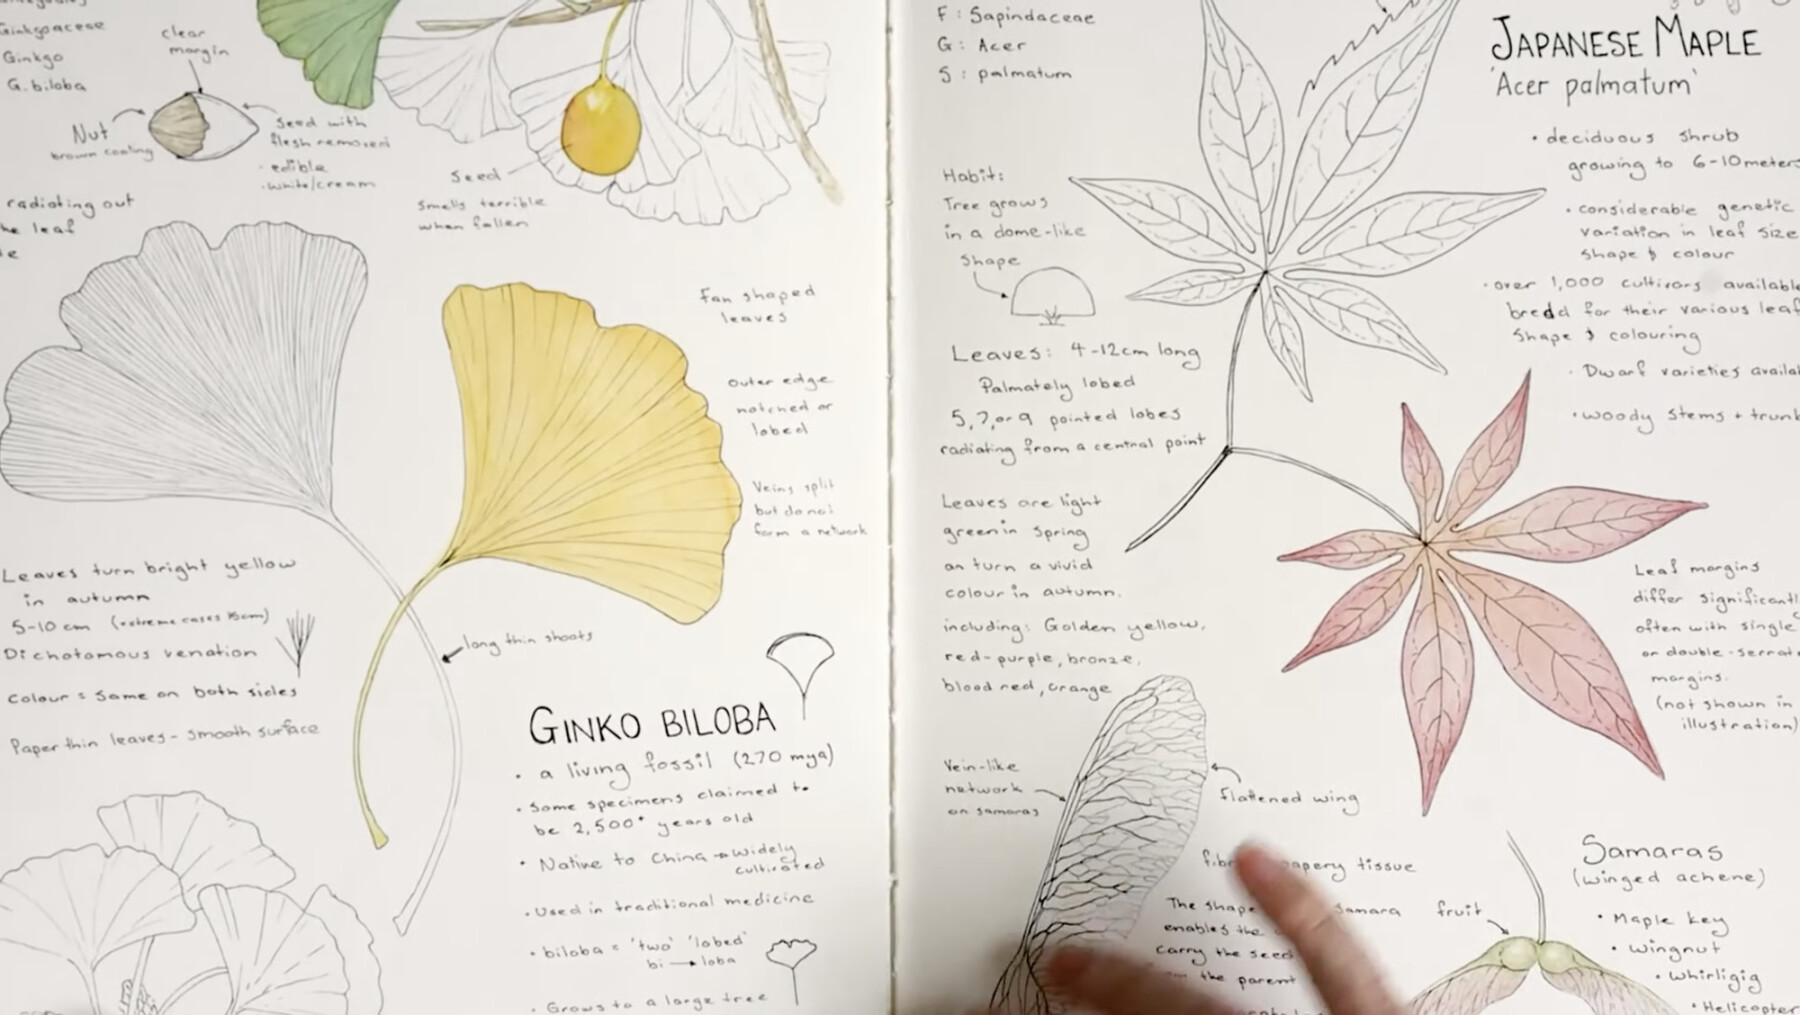 Ginkgoaceae
Ginkgo
G. biloba
clear
margin
Nut
brown coating
Seed with
flesh removed
- edible
- white/cream
radiating out
leaf
Seed
Smells terrible
when fallen
Fan shaped
leaves
outer edge
notched or
lobed
Veins split
but do not
form a network
Leaves turn bright yellow
in autumn
5-10 cm (extreme cases 15cm)
Dichotomous venation
Colour = Same on both sides
Paper thin leaves - smooth surface
long thin shoots
GINKO BILOBA
• a living fossil (270 mya)
• Some specimens claimed to
be 2,500+ years old
• Native to China → widely
cultivated
• Used in traditional medicine
• biloba = 'two' 'lobed'
bi → loba
• Grows to a large tree
F : Sapindaceae
G : Acer
S : palmatum
JAPANESE MAPLE
'Acer palmatum'
• deciduous shrub
growing to 6-10 meters
• considerable genetic
variation in leaf size
shape & colour
• over 1,000 cultivars available
bredd for their various leaf
Shape & colouring
• Dwarf varieties
• woody stems +
Habit:
Tree grows
in a dome-like
shape
Leaves: 4-12cm long
Palmately lobed
5, 7, or 9 pointed lobes
radiating from a central point
Leaves are light
green in spring
an turn a vivid
colour in autumn.
including: Golden yellow,
red-purple, bronze,
blood red, orange
Leaf margins
differ
often with single
or double-
margins.
(not shown in
illustration)
Vein-like
network
on samaras
flattened wing
papery tissue
The shape samara
enables the
carry the seed
the parent
fruit
Samaras
(winged achene)
• Maple key
• wingnut
• whirligig
• Helicopter